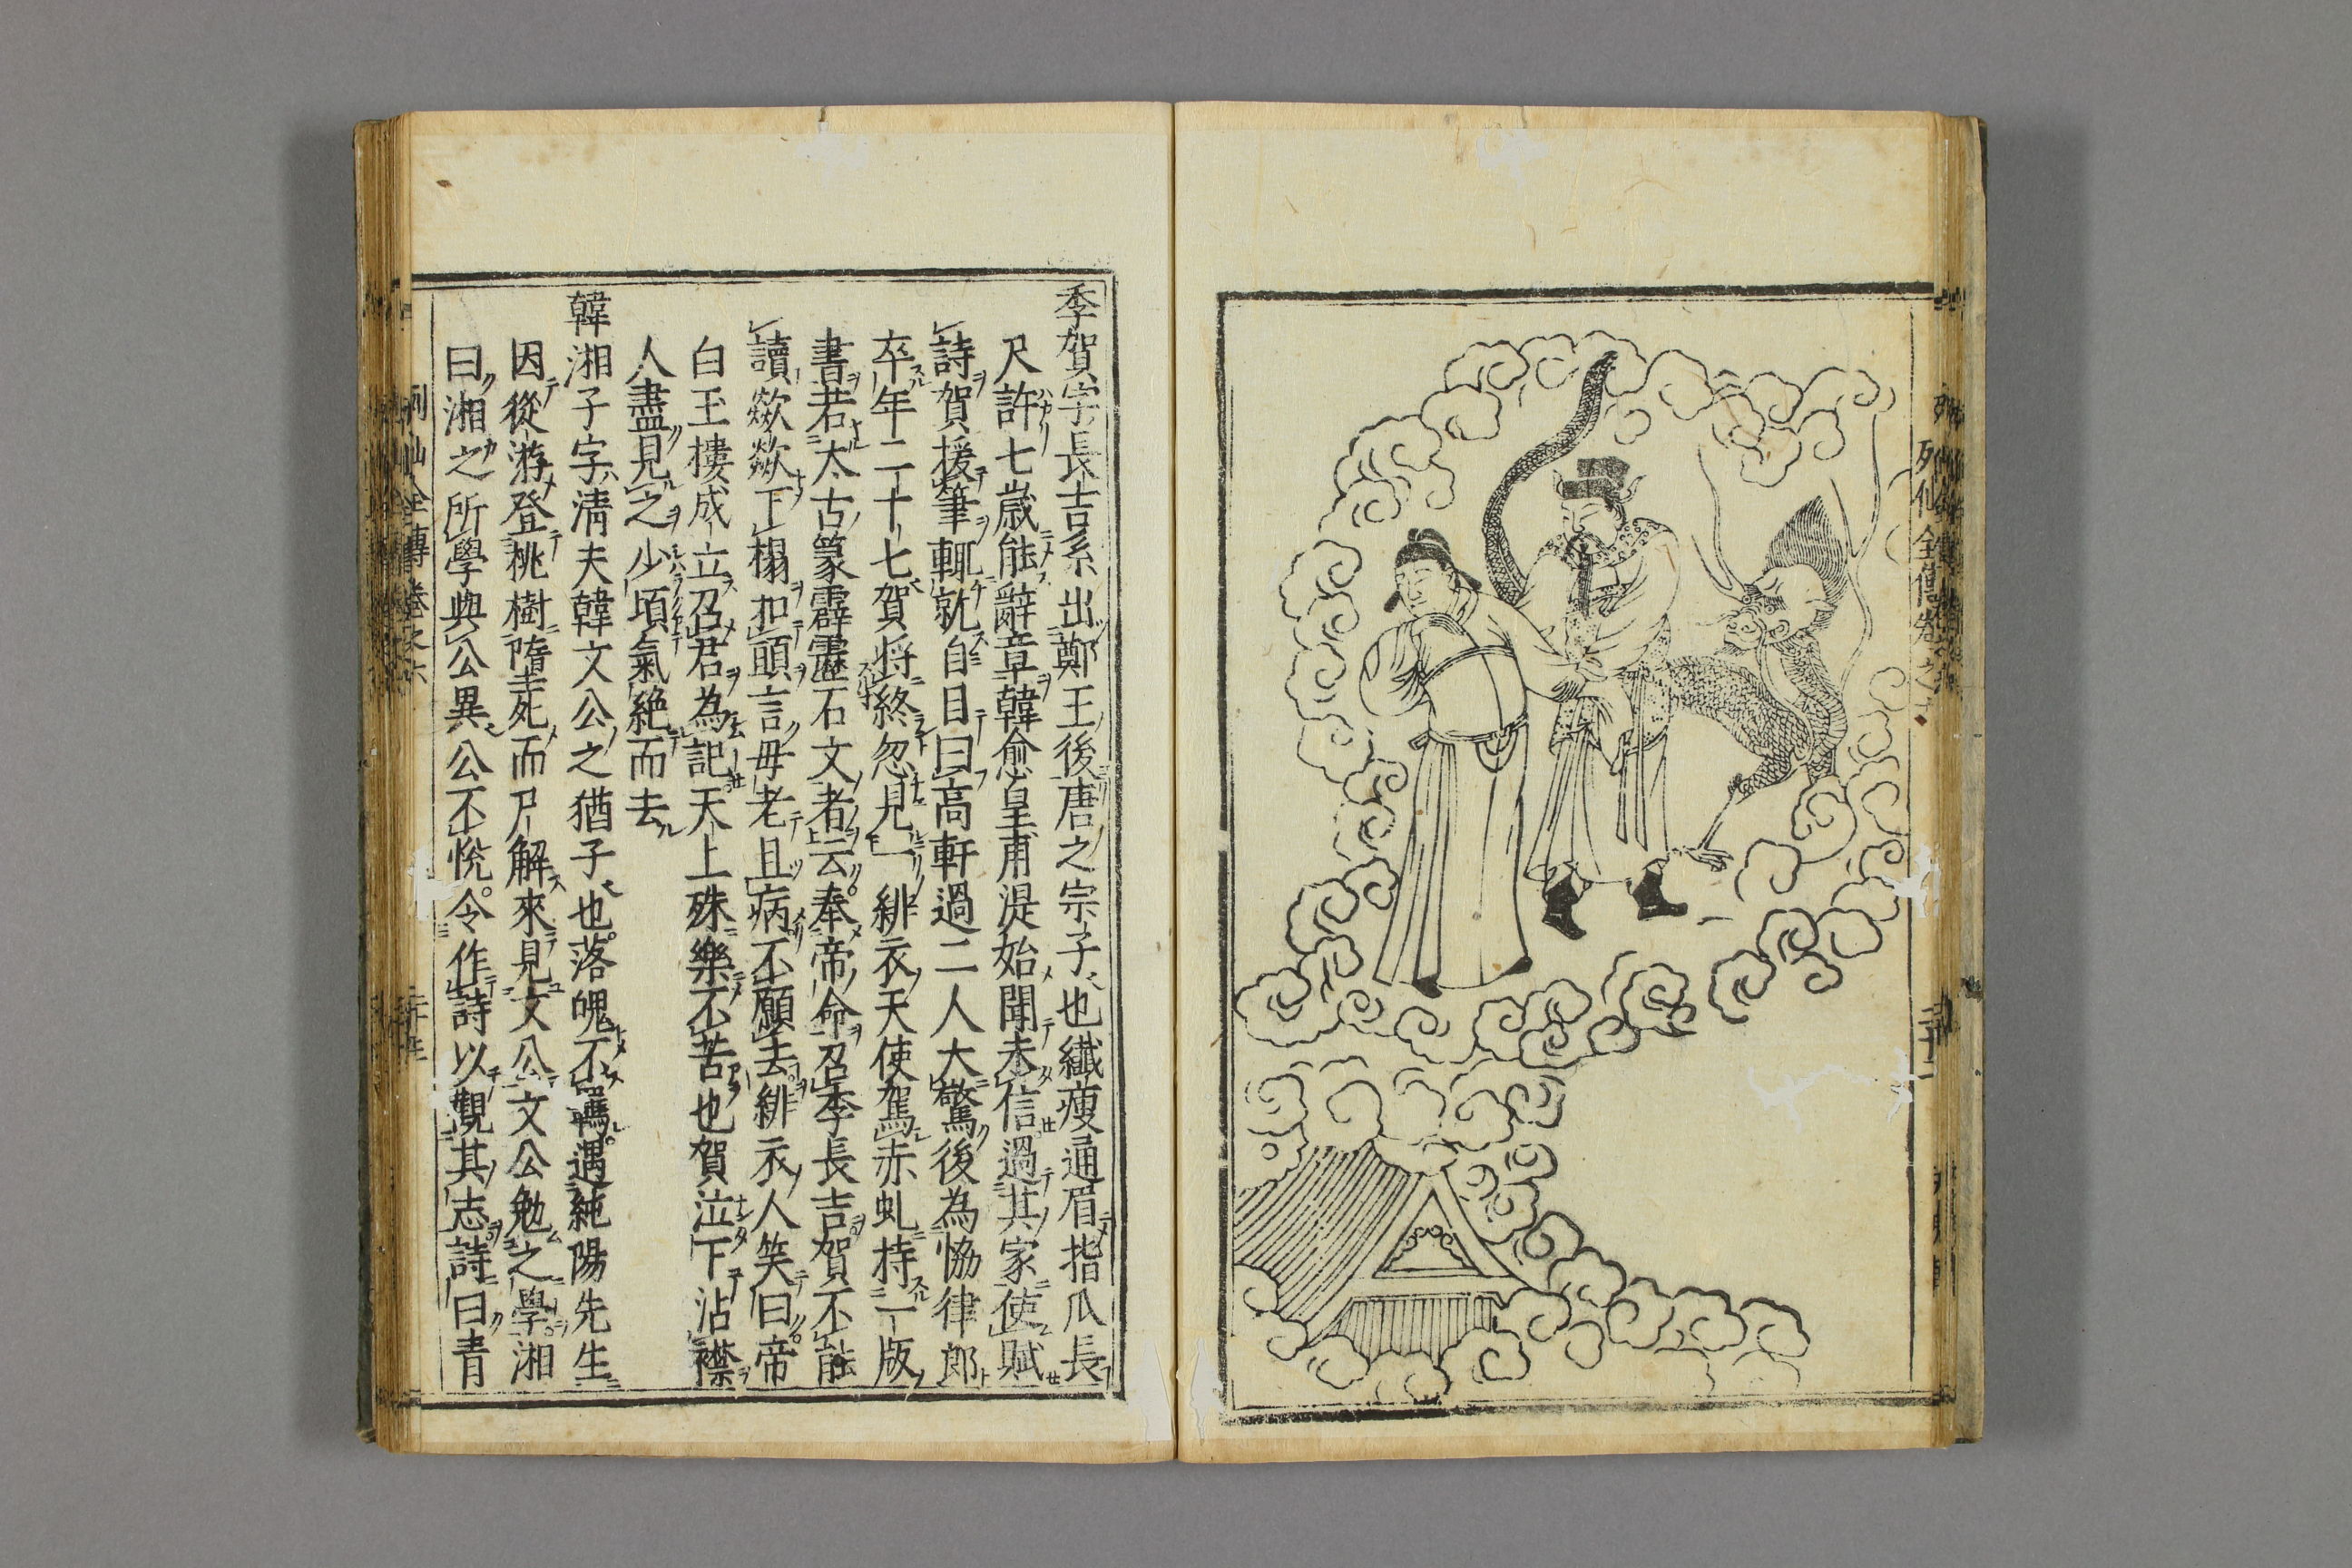 列仙全傳卷之六
二十二
李賀字長吉系出鄭王後唐之宗子也纖瘦通眉指爪長
尺許七歲能辭章韓愈皇甫湜始聞未信過其家使賦
詩賀援筆輒就自目曰高軒過二人大驚後為恊律郎
卒年二十七賀將終忽見一緋衣天使駕赤虬持一版
書若太古篆霹靂石文者云奉帝命召李長吉賀不能
讀歘歘下榻扣頭言母老且病不願去緋衣人笑曰帝
白玉樓成立召君為記天上殊樂不苦也賀泣下沾襟
人盡見之少頃氣絶而去
韓湘子字清夫韓文公之猶子也落魄不羈遇純陽先生
因從游登桃樹墮死而尸解來見文公文公勉之學湘
曰湘之所學與公異公不悅令作詩以觀其志詩曰青
列仙全傳卷之六